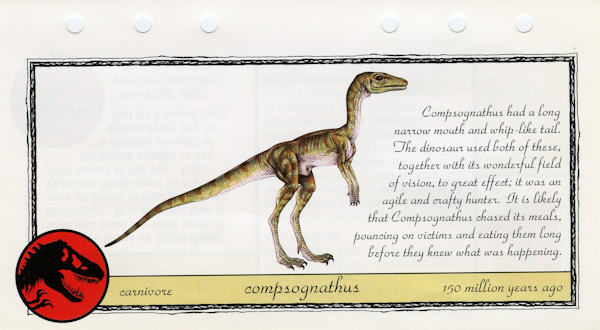 Compsognathus had a long
narrow mouth and whip-like tail.
The dinosaur used both of these,
together with its wonderful field
of vision, to great effect; it was an
agile and crafty hunter. It is likely
that Compsognathus chased its meals,
pouncing on victims and eating them long
before they knew what was happening.
carnivore compsognathus 150 million years ago